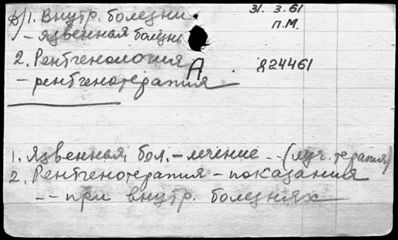 д/1. Внутр. болезни. 31. 3.61
– язвенная болезнь П.М.
2. Рентгенология А. д24461
– рентгенотерапия
1. Язвенная бол. – лечение - (луч. терапия)
2. Рентгенотерапия – показания
– – при внутр. болезнях